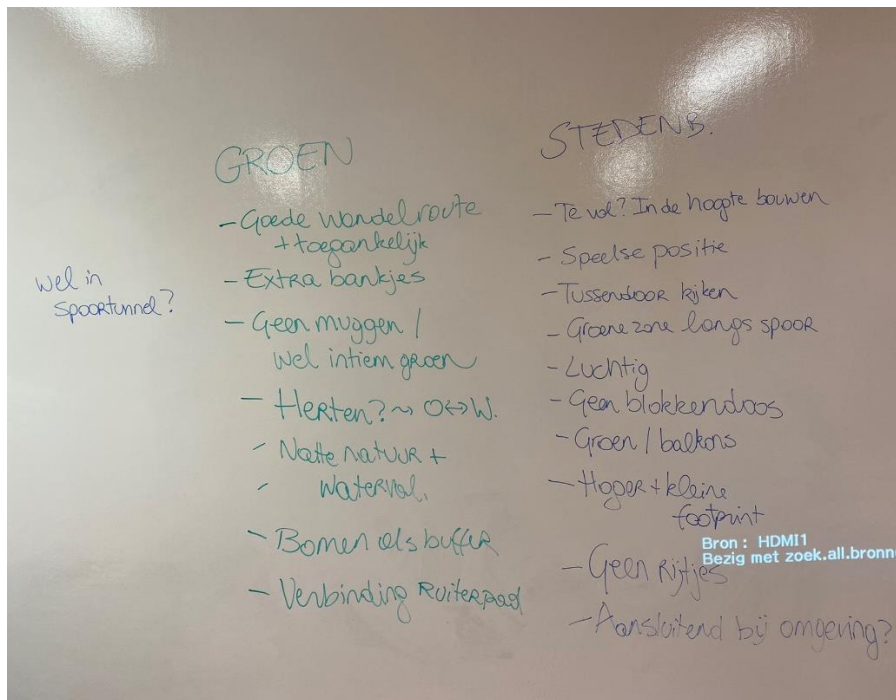 wel in
spoortunnel?
GROEN
- Goede wandelroute
+ toegankelijk
- Extra bankjes
- Geen muggen /
wel intiem groen
- Herten? ~> O<->W.
- Natte natuur +
- waterval.
- Bomen als buffer
- Verbinding Ruiterpad
STEDENB.
- Te vol? In de hoogte bouwen
- Speelse positie
- Tussendoor kijken
- Groene zone langs spoor
- Luchtig
- Geen blokkendoos
- Groen / balkons
- Hoger + kleine
footprint
Bron : HDMI1
Bezig met zoek.all.bronn
- Geen Rijtjes
- Aansluitend bij omgeving?